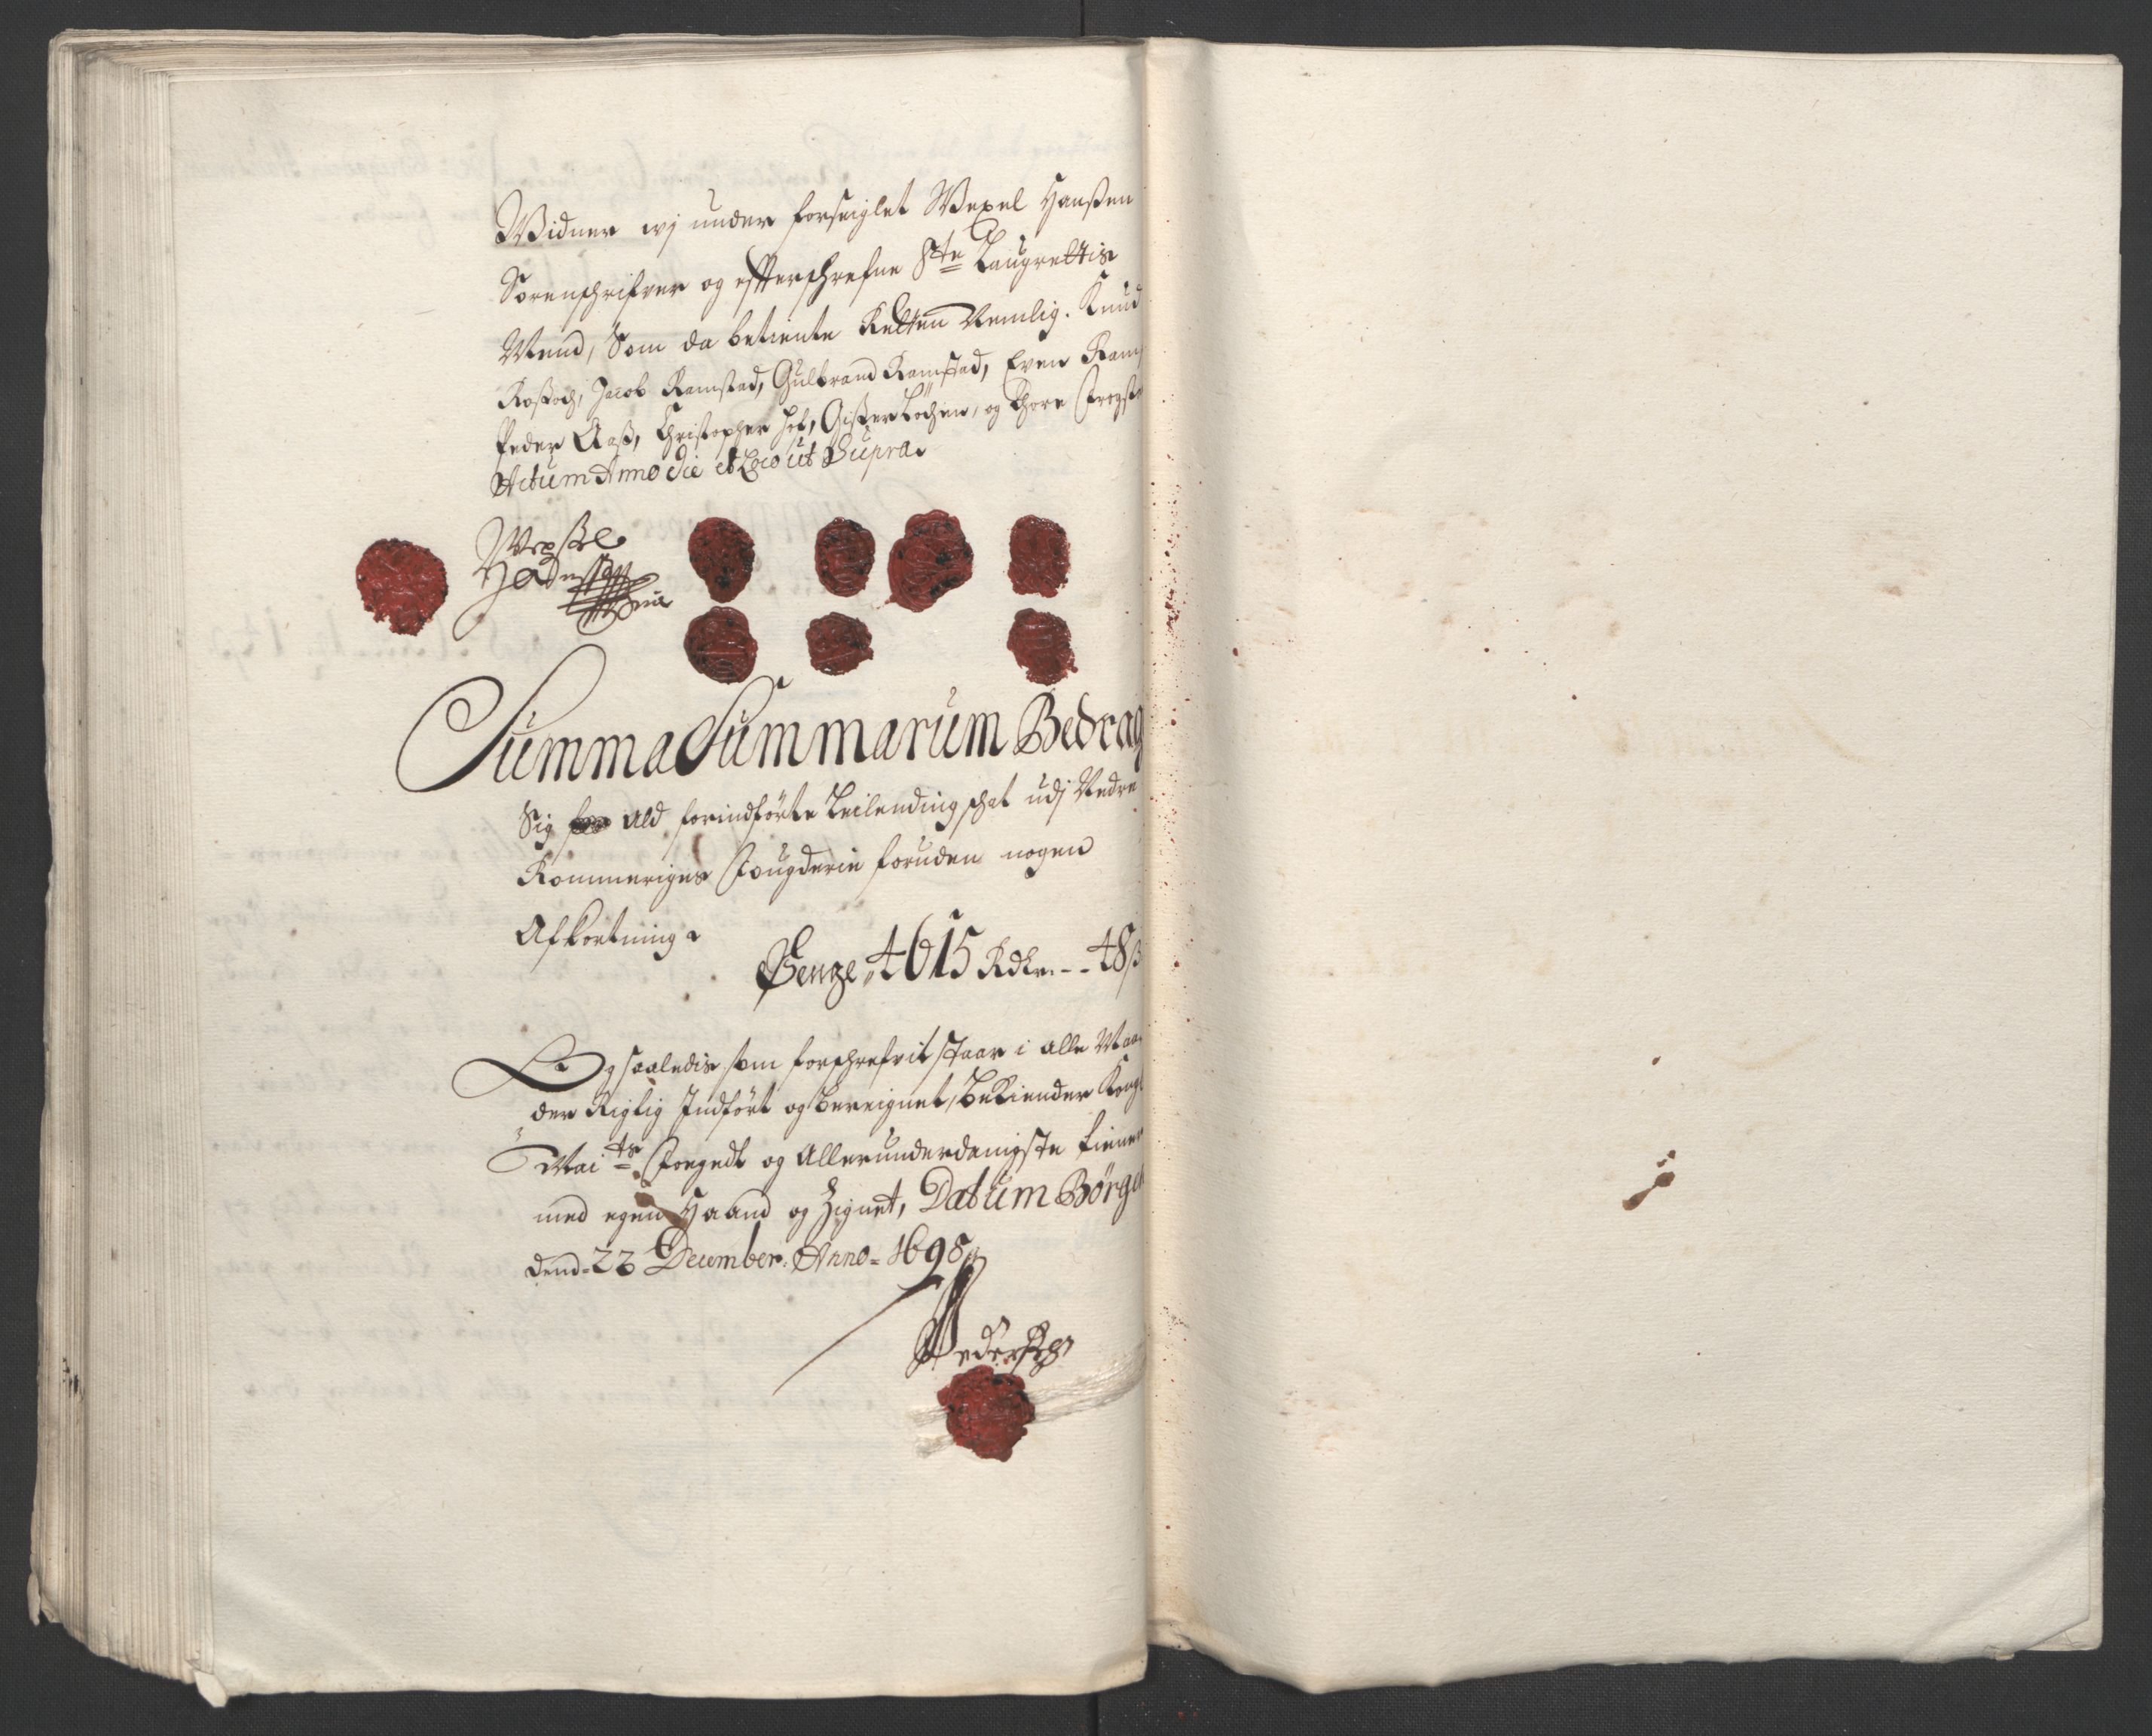 Widner wj under forseiglet Wexel Hanßen
Sorenschrifver og effterschrefne 8te Laugrettis
Mend, Som da betiente Retten Nemlig. Knud
Roßoch, Jacob Ramstad, Gulbrand Ramstad, Even Ram
Peder Aaß, Christopher Hof, Gißer Løchen, og Thore
Actum Anno die et Loco ut Supra.
Wexsel
Hanssen
Summa Summarum Bedrag
Sig Ald forindførte Leilending schat udj Nedre
Rommeriges Fougderie foruden nogen
Afkortning
Penge, 4615 Rdlr. - - 48 ß
Og saaledis som forschrefvit staar i alle Maa
der Rigtig Indført og bereignet, Bekiender Kongl
Mai ts Foegedt og Allerunderdanigste tiener
med egen Haand og Zignet, Datum Børge
dend. 22 December. Anno. 1698